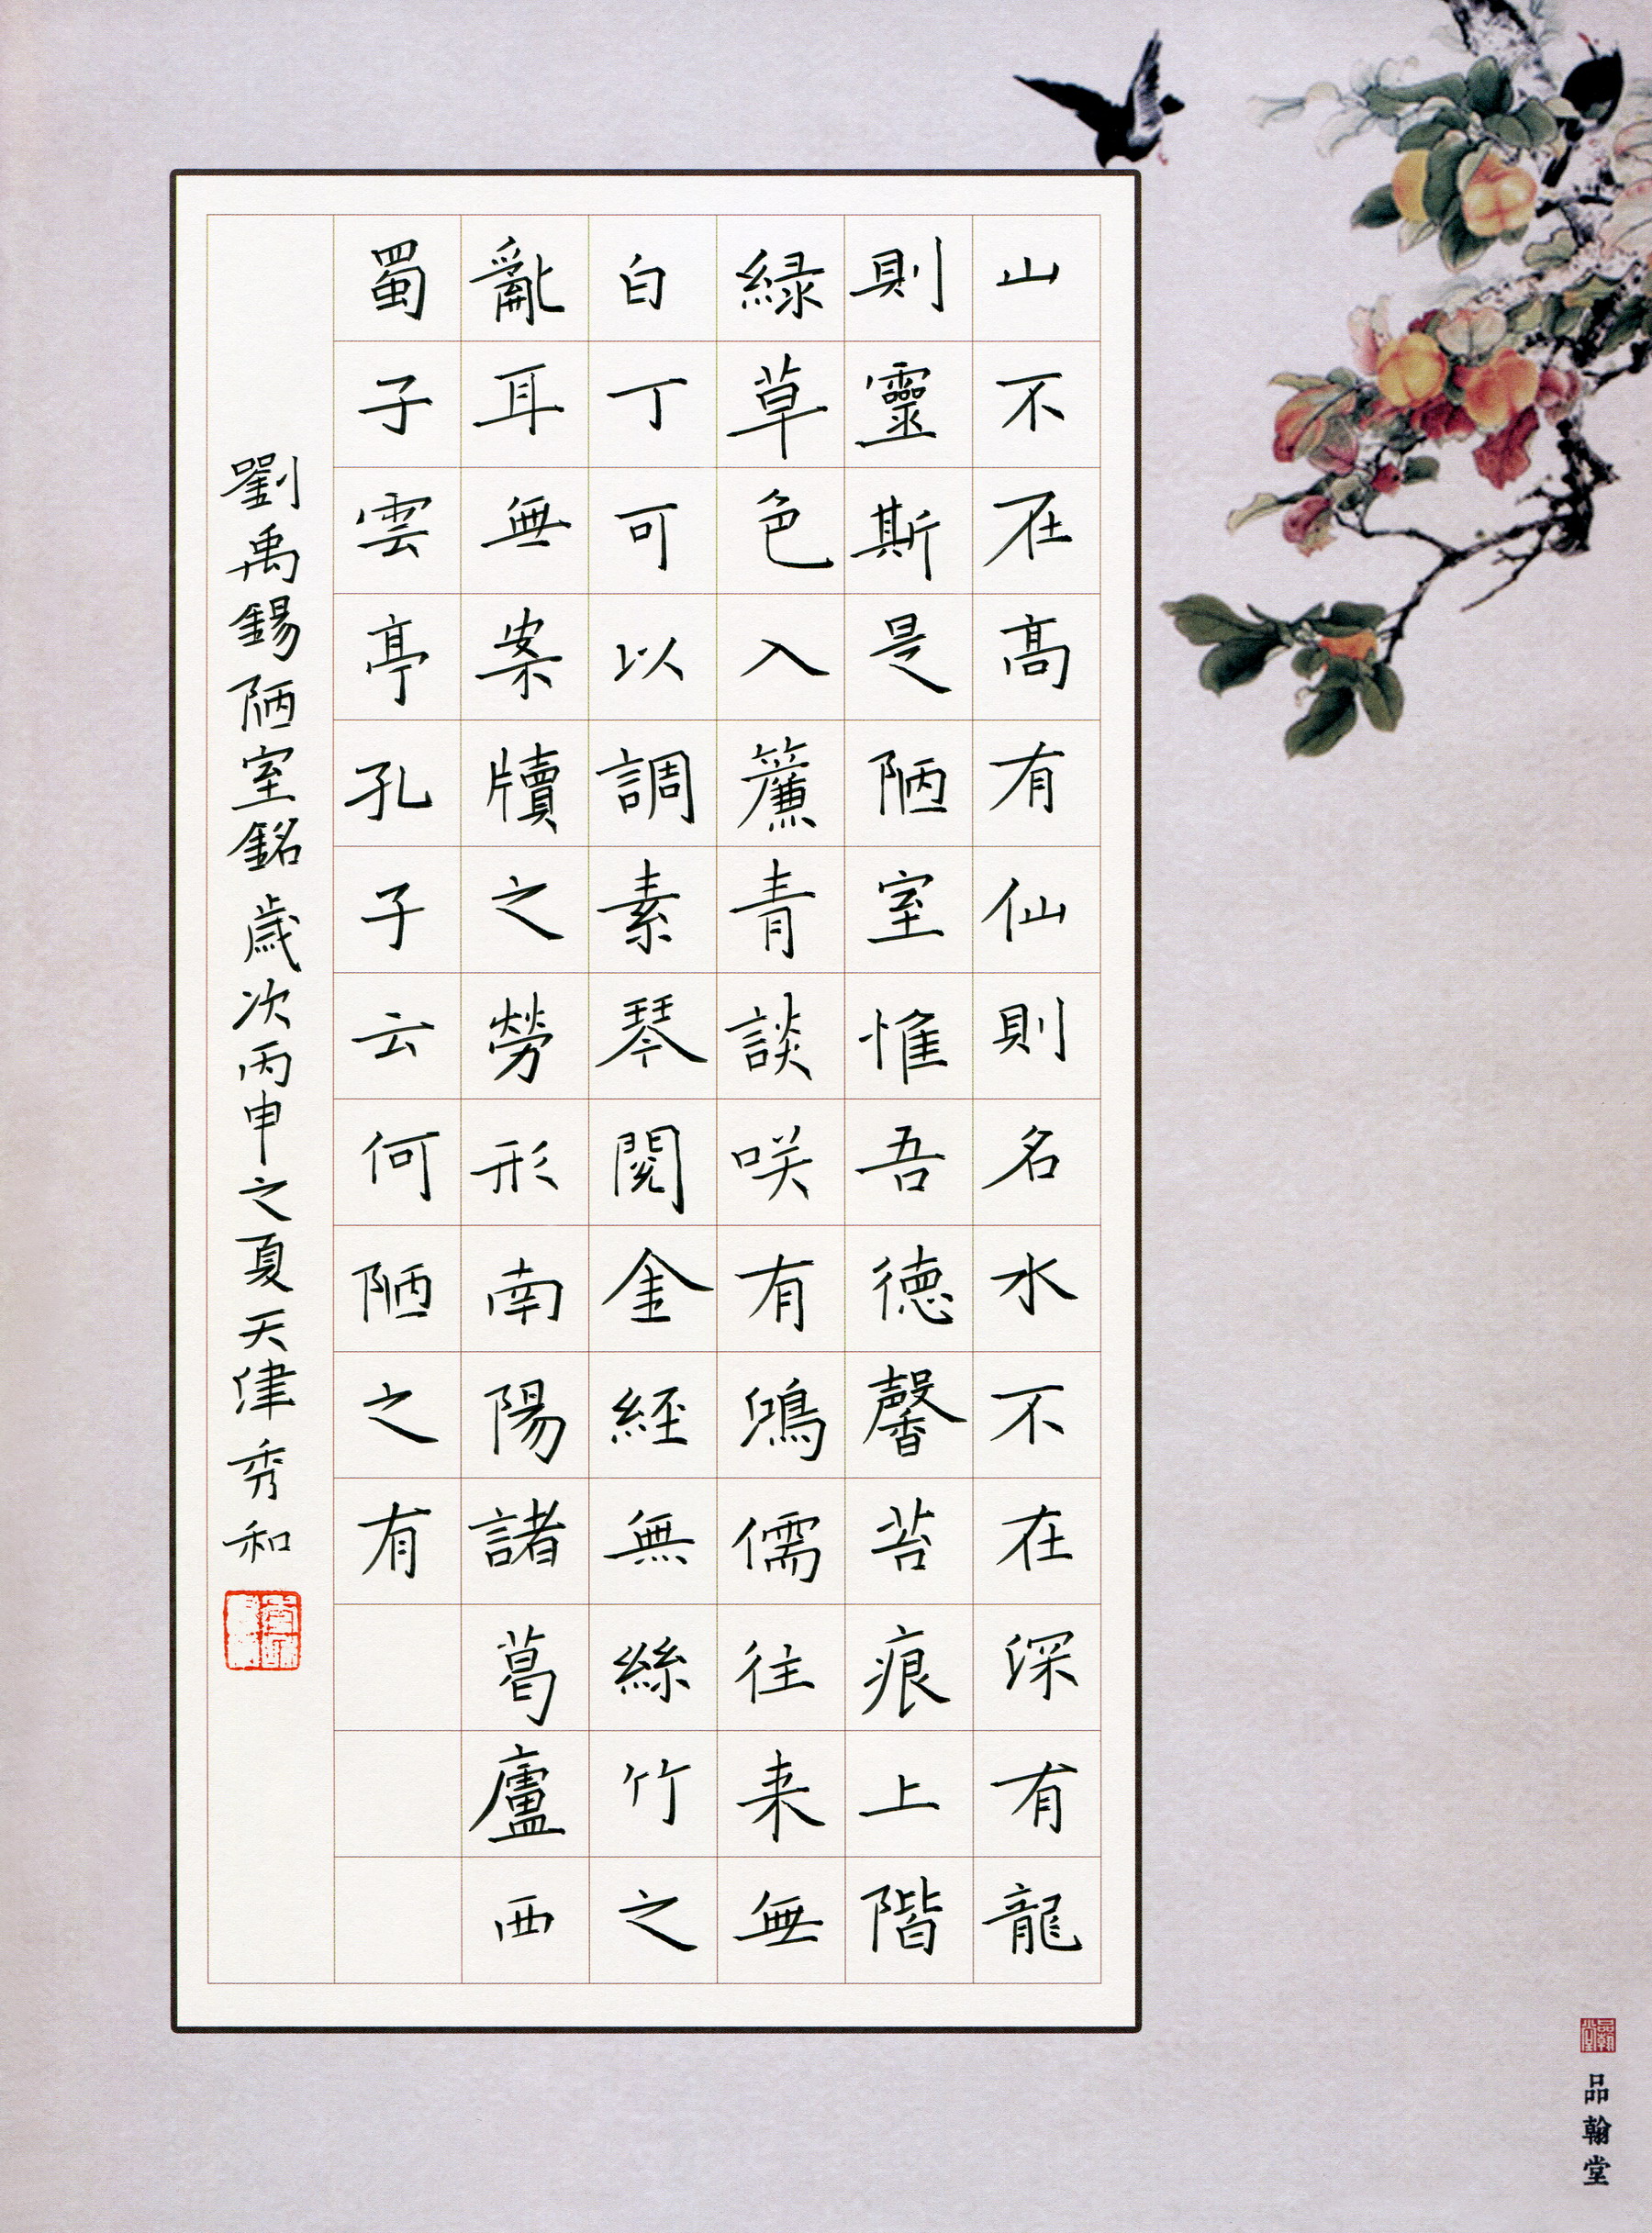 山不在高有仙則名水不在深有龍
則靈斯是陋室惟吾德馨苔痕上階
緑草色入簾青談咲有鴻儒往来無
白丁可以調素琴閱金経無絲竹之
亂耳無案牘之勞形南陽諸葛廬西
蜀子雲亭孔子云何陋之有
劉禹錫陋室銘歲次丙申之夏天津秀和
品翰堂
品翰堂